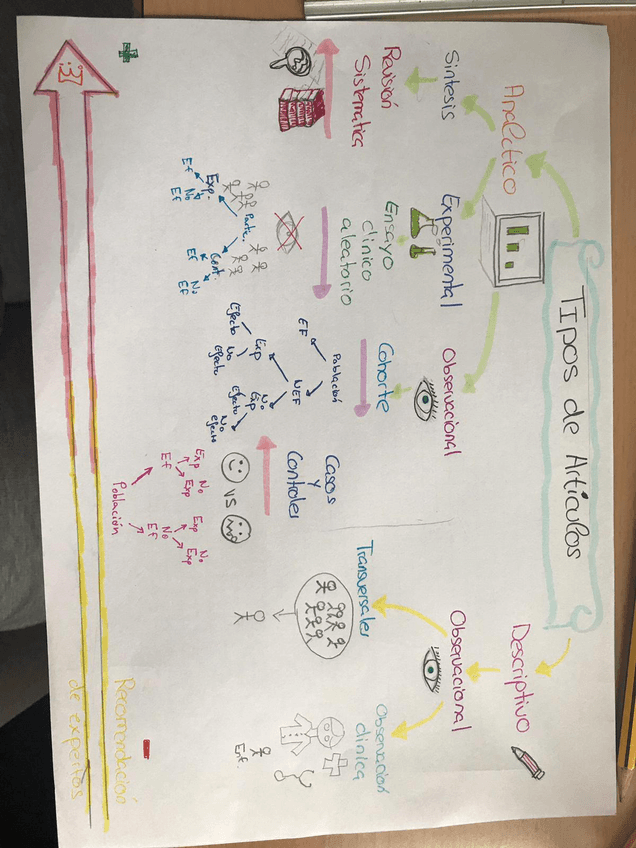 Tipos de Articulos
Analitico
Sintesis
Revisión
Sistematica
Experimental
Ensayo
clinico
aleatorio
Partic.
Exp.
Ef
No
Ef
Cont.
Ef
No
Ef
Observacional
Cohorte
Población
EF
NEF
Exp
No
Exp
Efecto
No
Efecto
Efecto
No
efecto
Casos
y
Controles
VS
Exp No
Exp
Ef
Exp No
Exp
No
Ef
Población
Descriptivo
Observacional
Transversales
Observación
clínica
Enf.
+
-
Recomendación
de expertos